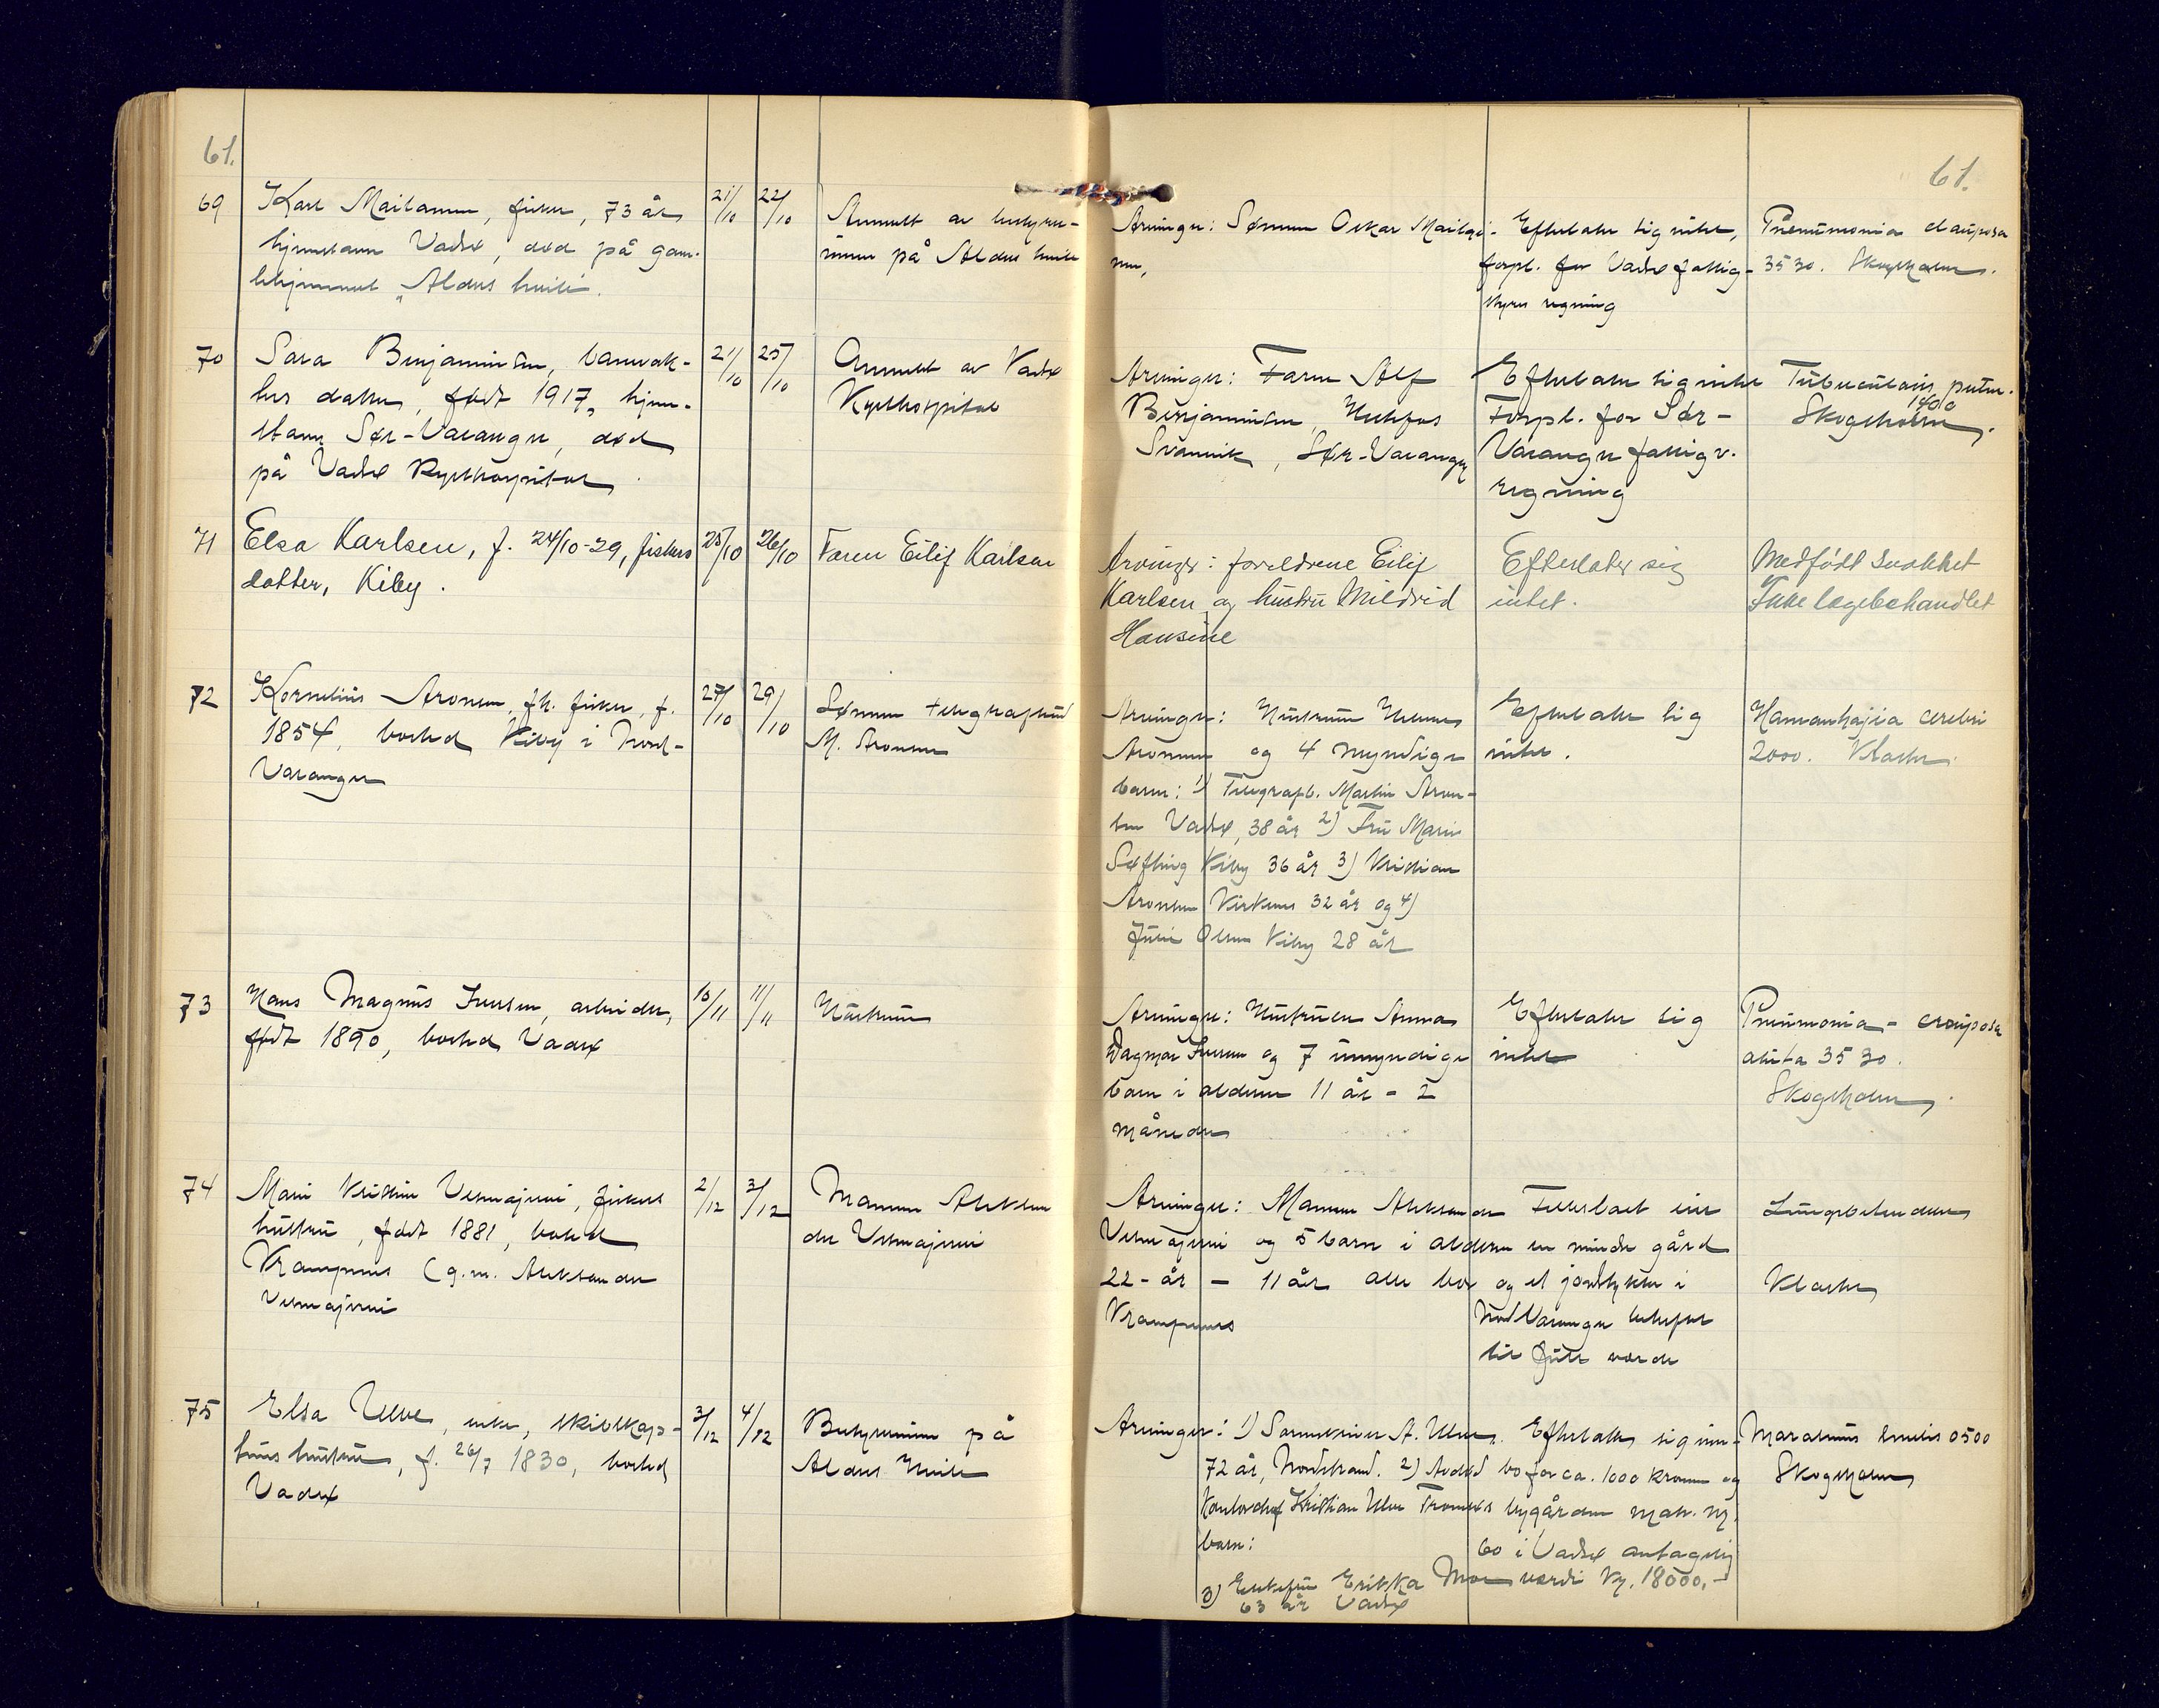 61.
69 Karl Mailanen, fisker, 73 år 21/10 22/10
hjemstavn Vadsø, død på gam-
lehjemmet "Aldus hvile".
Anmelt av bestyrer-
innen på Aldus hvile
70 Sara Benjaminsen, barnvok-
sen datter, født 1917, hjem-
stavn Sør-Varanger, død
på Vadsø Sykehospital
21/10 25/10
Anmelt av Vadsø
Sykehospital
71 Elsa Karlsen, f. 24/10-29, fiskers 25/10 26/10 Faren Eilif Karlsen
datter, Kiby.
72 Kornelius Aronsen, fh. fisker, f. 27/10 29/10
1854, bosted Kiby i Nord-
Varanger
Sønnen telegrafbud
M. Aronsen
73 Hans Magnus Iversen, arbeider, 10/11 11/11 Hustruen
født 1890, bosted Vadsø
74 Mari Kristine fiskers 2/12 3/12
hustru, født 1881, bosted
Krampenes (g.m. Aleksander
Mannen Aleksan
der
75 Elsa Ulve, enke, skibskap- 3/12 4/12
teins hustru, f. 26/7 1830, bosted
Vadsø
Bestyrerinnen på
Aldus Hvile
61.
Arvinger: Sønnen Oskar Maila-
nen,
Efterlater sig intet,
forpl. for Vadsø fattig-
styres regning
Pneumonia crouposa
3530. Skogsholm.
Arvinger: Faren Alf
Benjaminsen,
Svanvik, Sør-Varanger
Efterlater sig intet
Forpl. for Sør-
Varanger fattigv.
regning
Tuberculosis pulm.
1400
Skogsholm.
Arvinger: foreldrene Eilif
Karlsen og hustru Mildrid
Hansine
Efterlater sig
intet.
Medfødt svakhet
Ikke legebehandlet
Arvinger: Hustruen
Aronsen og 4 myndige
barn: 1) Telegrafb. Martin Aron-
sen Vadsø, 38 år 2) Fru Marie
Kiby 36 år 3) Kristian
Aronsen Kirkenes 32 år og 4)
Julie Olsen Kiby 28 år
Efterlater sig
intet.
Hæmorrhagia cerebri
2000.
Arvinger: Hustruen Anna
Dagmar Iversen og 7 umyndige
barn i alderen 11 år - 2
måneder
Efterlater sig
intet
Pneumonia - crouposa
akuta 3530.
Skogsholm.
Arvinger: Mannen Aleksander
og 5 barn i alderen
22-år - 11 år alle bor
Krampenes
en mindre gård
og et jordstykke i
Nord Varanger
til full verdi
Lungebetendelse
Arvinger: 1) A. Ulve.
72 år, Nordstrand. 2) Avdød
Kontorchef Kristian Ulve Tromsøs
barn:
3) Enkefru Erikka Moe
63 år Vadsø
Efterlater sig inn-
bo for ca. 1000 kroner og
bygården matr. nr.
60 i Vadsø antagelig
verdi kr. 18000,-
Marasmus senilis 0500
Skogsholm